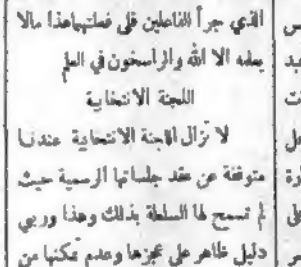 الذي جرأ الفاعلين على فعلتهم هذا مالا
يعلمه الا الله والراسخون في العلم
اللجنة الانتخابية
لا تزال اللجنة الانتخابية عندنا
متوقفة عن عقد جلساتها الرسمية حيث
لم تسمح لها السلطة بذلك وهذا وربي
دليل ظاهر على عجزها وعدم تمكنها من